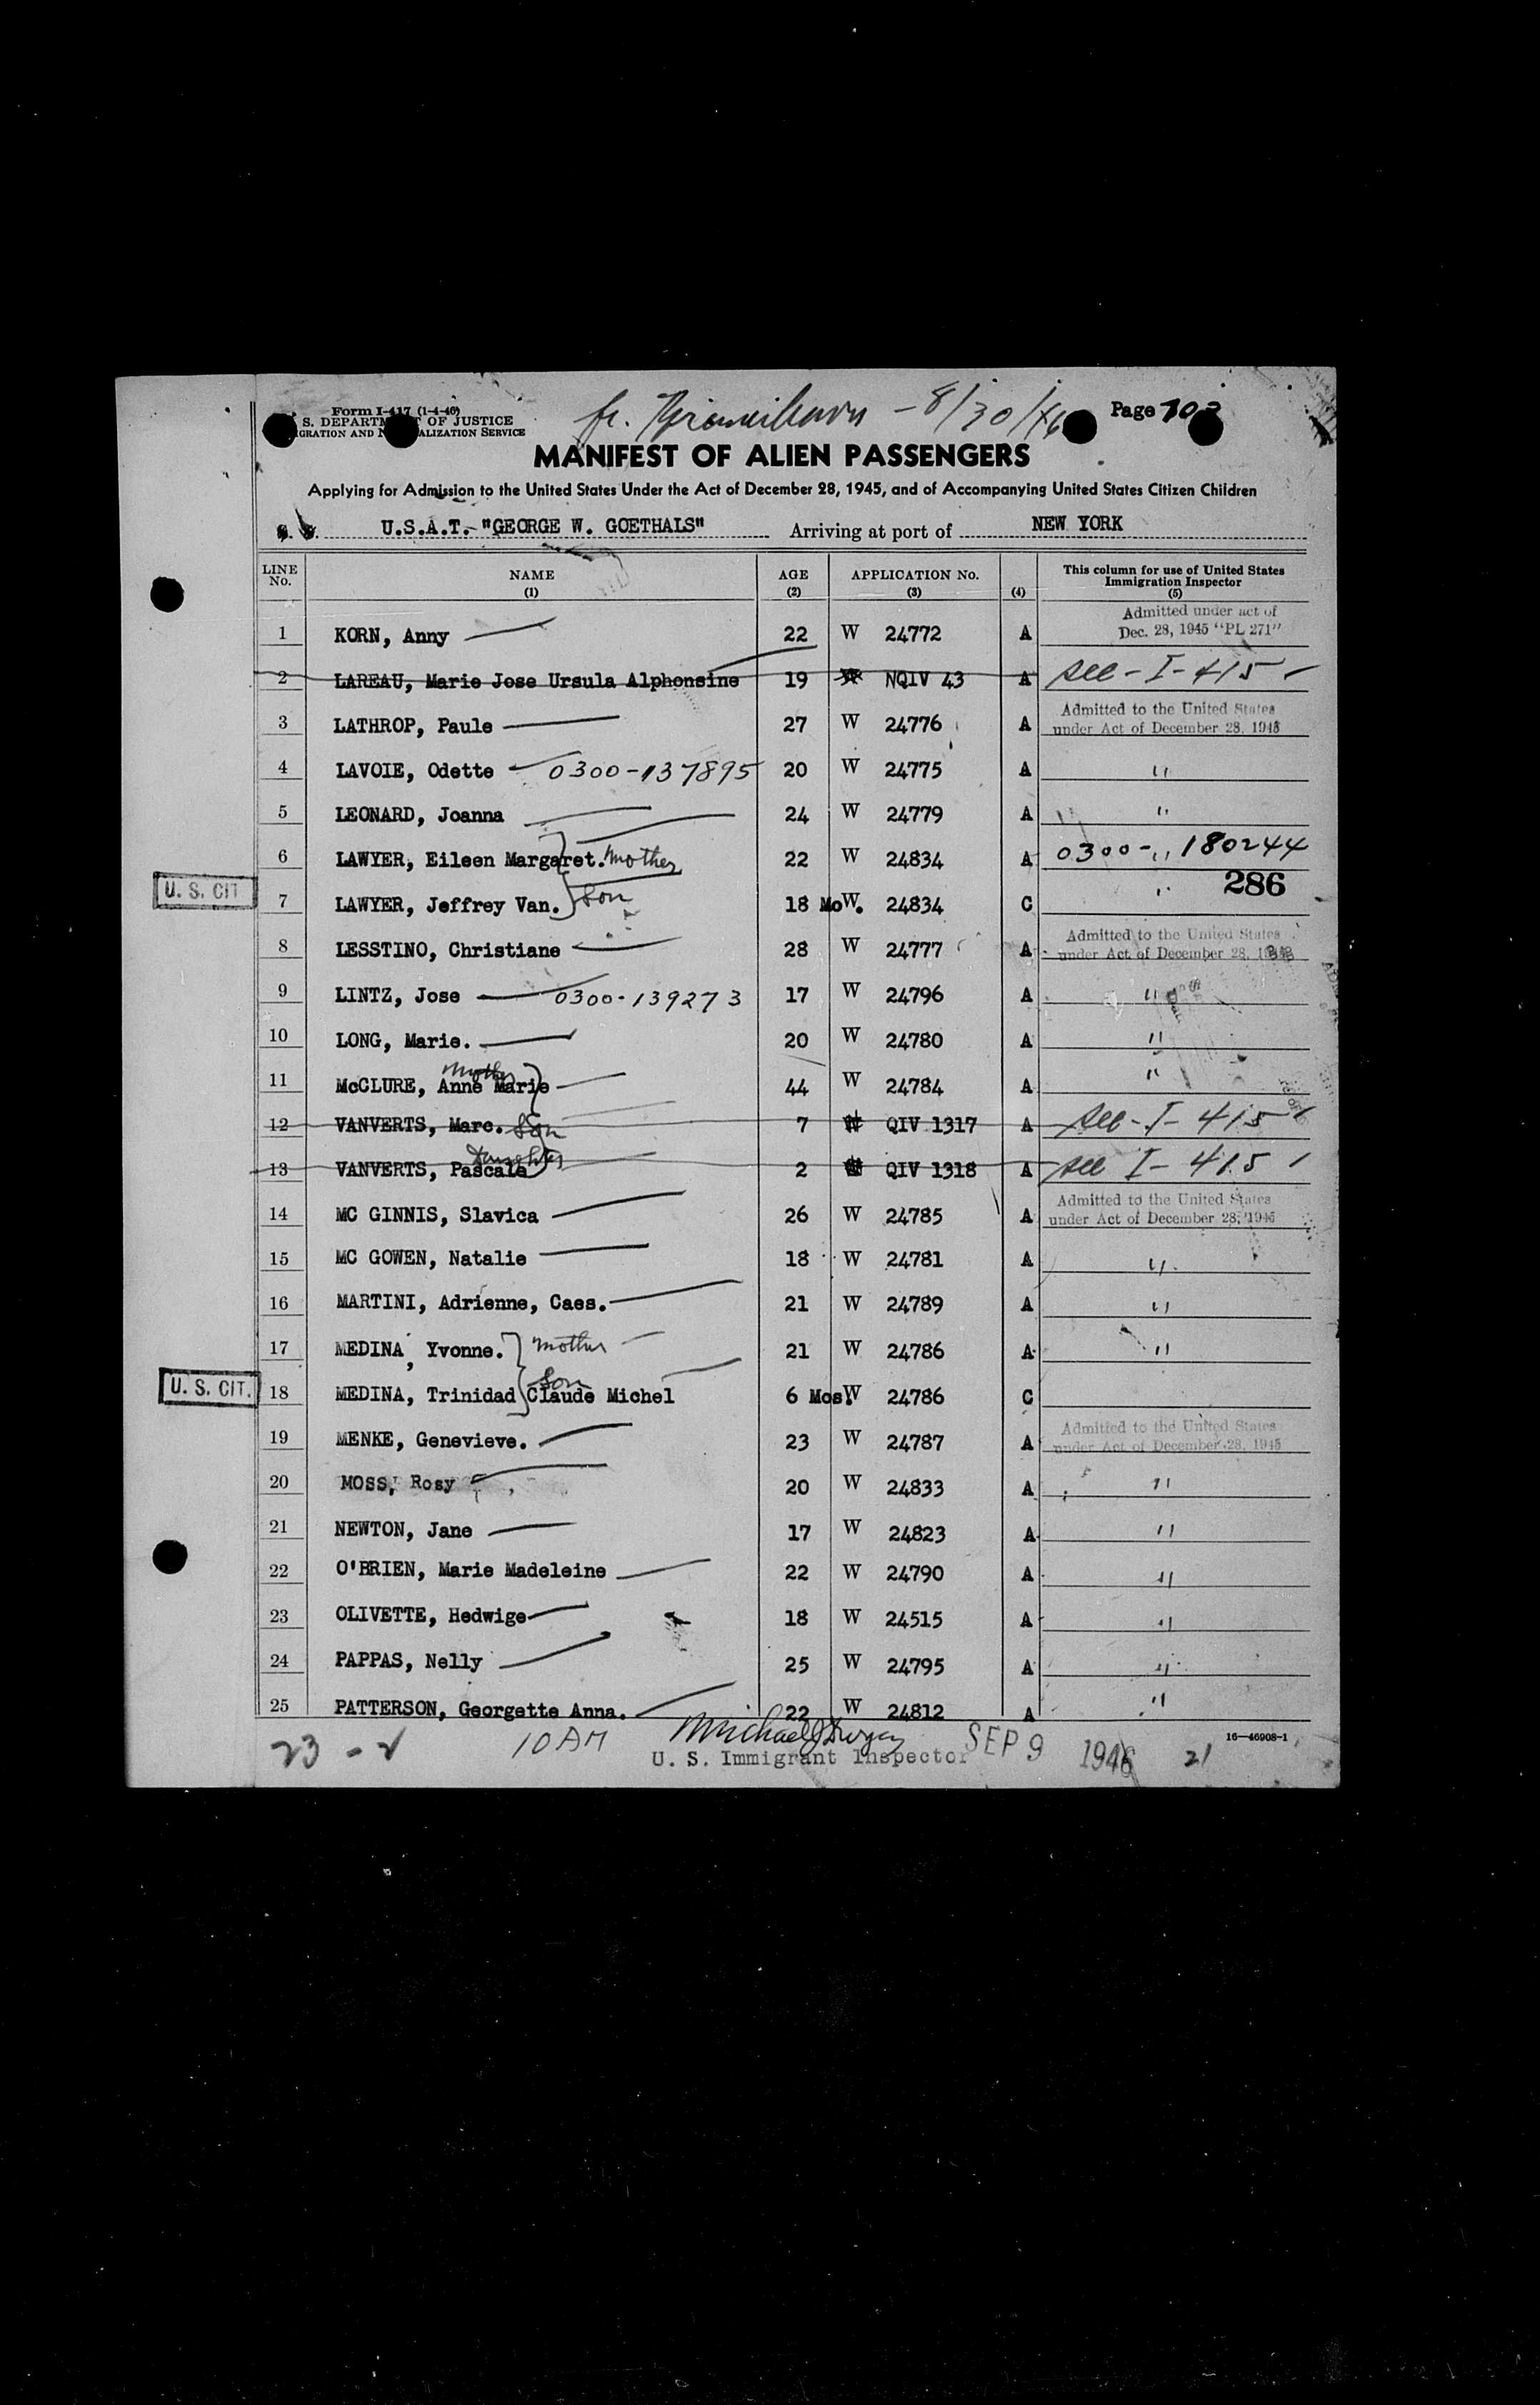 Form I-417 (1-4-46)
S. DEPARTM T OF JUSTICE
IGRATION AND N ALIZATION SERVICE
fr. - 8/30/46
Page 103
MANIFEST OF ALIEN PASSENGERS
Applying for Admission to the United States Under the Act of December 28, 1945, and of Accompanying United States Citizen Children
U.S.A.T. "GEORGE W. GOETHALS" Arriving at port of NEW YORK
LINE No. NAME (1) AGE (2) APPLICATION No. (3) (4) This column for use of United States Immigration Inspector (5)
Admitted under act of
1 KORN, Anny 22 W 24772 A Dec. 28, 1945 "PL 271"
2 LAREAU, Marie Jose Ursula Alphonsine 19 W NQIV 43 A see - I - 415
Admitted to the United States
3 LATHROP, Paule 27 W 24776 A under Act of December 28, 1945
4 LAVOIE, Odette 0300-137895 20 W 24775 A "
5 LEONARD, Joanna 24 W 24779 A "
6 LAWYER, Eileen Margaret. Mother 22 W 24834 A 0300- " 180244
286
U. S. CIT 7 LAWYER, Jeffrey Van. Son 18 Mo. W 24834 C "
Admitted to the United States
8 LESSTINO, Christiane 28 W 24777 A under Act of December 28, 1945
9 LINTZ, Jose 0300-139273 17 W 24796 A "
10 LONG, Marie. 20 W 24780 A "
Mother
11 McCLURE, Anne Marie 44 W 24784 A "
12 VANVERTS, Marc. Son 7 W QIV 1317 A see - I - 415
Daughter
13 VANVERTS, Pascale 2 W QIV 1318 A see I - 415
Admitted to the United States
14 MC GINNIS, Slavica 26 W 24785 A under Act of December 28, 1945
15 MC GOWEN, Natalie 18 W 24781 A "
16 MARTINI, Adrienne, Caes. 21 W 24789 A "
17 MEDINA, Yvonne. Mother 21 W 24786 A "
Son
U. S. CIT. 18 MEDINA, Trinidad Claude Michel 6 Mos. W 24786 C
Admitted to the United States
19 MENKE, Genevieve. 23 W 24787 A under Act of December 28, 1945
20 MOSS, Rosy 20 W 24833 A "
21 NEWTON, Jane 17 W 24823 A "
22 O'BRIEN, Marie Madeleine 22 W 24790 A "
23 OLIVETTE, Hedwige 18 W 24515 A "
24 PAPPAS, Nelly 25 W 24795 A "
25 PATTERSON, Georgette Anna. 22 W 24812 A "
23 - 2 10 AM Michael J Dwyer SEP 9 1946 21
U. S. Immigrant Inspector
16—46908-1